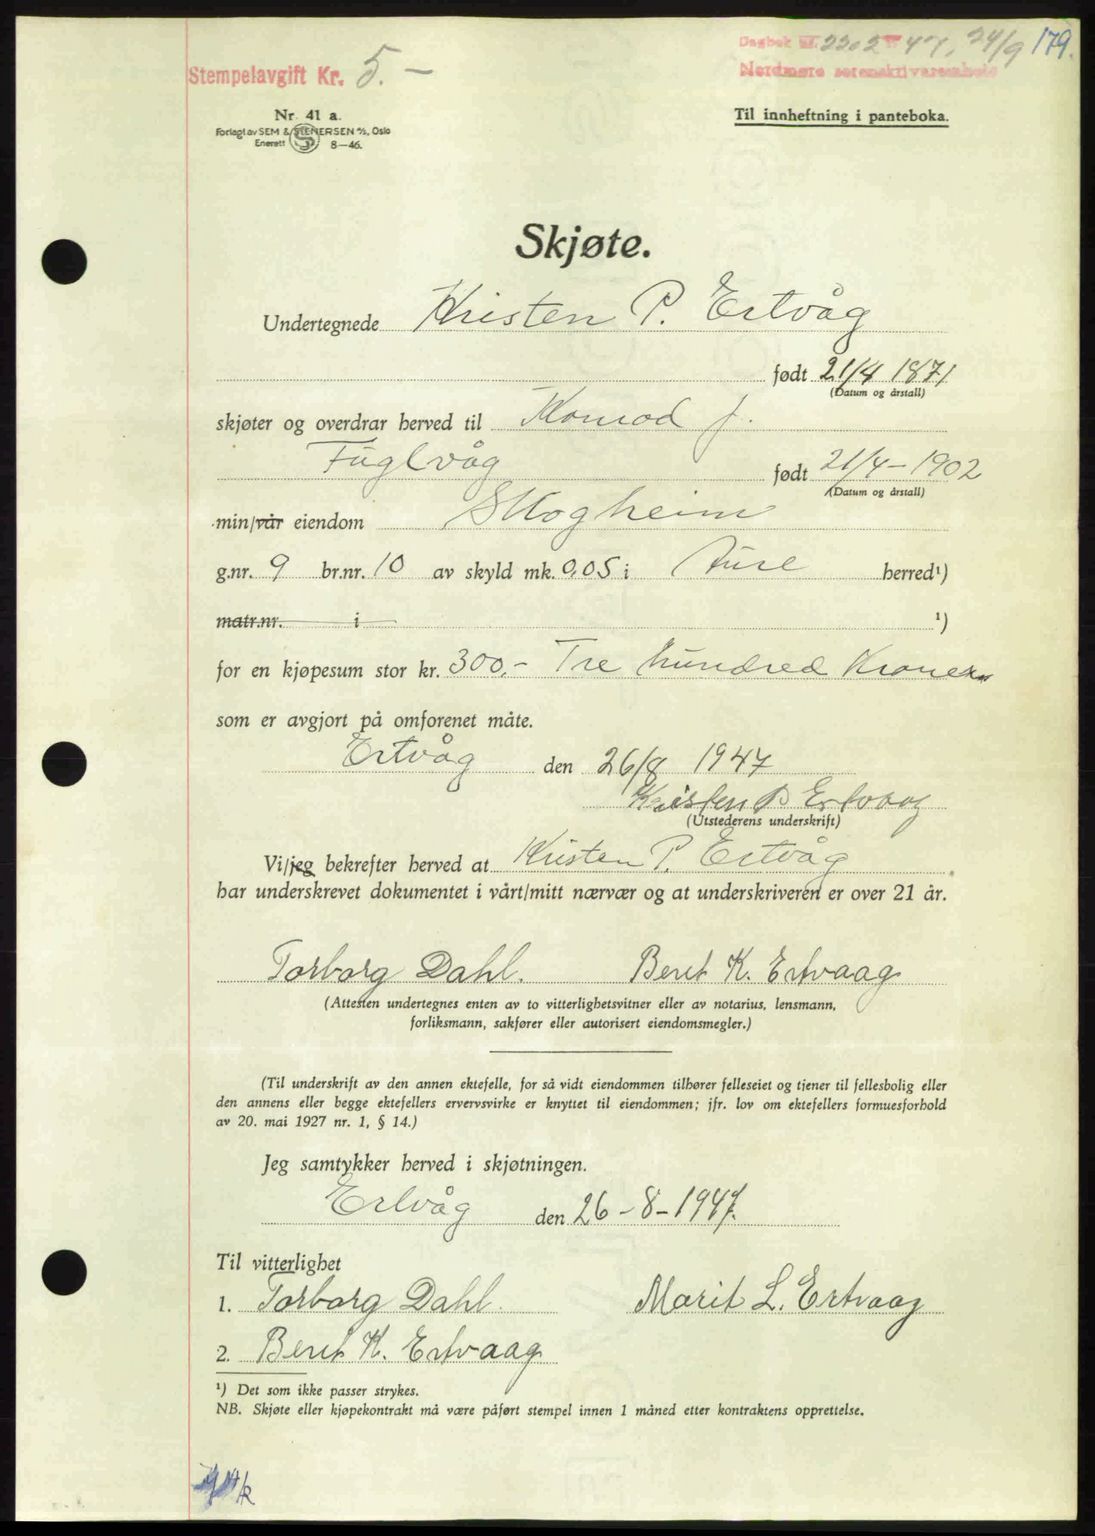 Dagbok nr. 2202 47, 24/9 179.
Stempelavgift Kr. 5.-
Nordmøre sorenskriverembede
Nr. 41 a.
Forlagt av SEM & STENERSEN A/S, Oslo
Enerett 8-46.
Til innheftning i panteboka.
Skjøte.
Undertegnede Kristen P. Ertvåg
født 21/4 1871
(Datum og årstall)
skjøter og overdrar herved til Konrad J.
Fuglvåg født 21/4-1902
(Datum og årstall)
min/vår eiendom Skogheim
g.nr. 9 br.nr. 10 av skyld mk. 0,05 i Aure herred¹)
matr.nr. i ¹)
for en kjøpesum stor kr. 300,- Tre hundred Kroner
som er avgjort på omforenet måte.
Ertvåg den 26/8 1947
Kristen P Ertvaag
(Utstederens underskrift)
Vi/jeg bekrefter herved at Kristen P. Ertvåg
har underskrevet dokumentet i vårt/mitt nærvær og at underskriveren er over 21 år.
Torborg Dahl. Beret K. Ertvaag
(Attesten undertegnes enten av to vitterlighetsvitner eller av notarius, lensmann,
forliksmann, sakfører eller autorisert eiendomsmegler.)
(Til underskrift av den annen ektefelle, for så vidt eiendommen tilhører felleseiet og tjener til fellesbolig eller
den annens eller begge ektefellers ervervsvirke er knyttet til eiendommen; jfr. lov om ektefellers formuesforhold
av 20. mai 1927 nr. 1, § 14.)
Jeg samtykker herved i skjøtningen.
Ertvåg den 26-8-1947.
Til vitterlighet
1. Torborg Dahl. Marit L. Ertvaag
2. Beret K. Ertvaag
¹) Det som ikke passer strykes.
NB. Skjøte eller kjøpekontrakt må være påført stempel innen 1 måned etter kontraktens opprettelse.